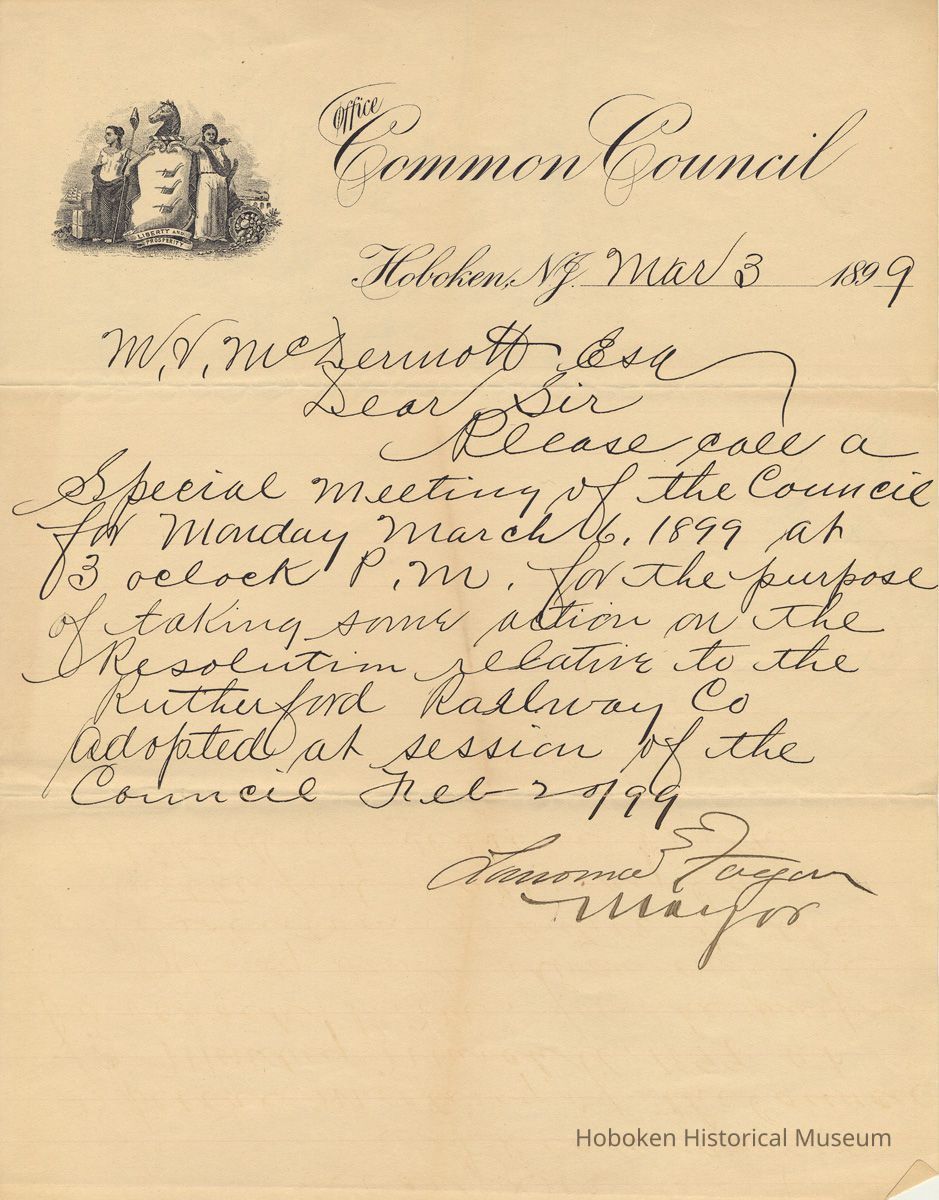 Office
Common Council
LIBERTY AND
PROSPERITY
Hoboken, N.J. Mar 3 1899
M. V. McDermott Esq
Dear Sir
Please call a
Special Meeting of the Council
for Monday March 6, 1899 at
3 oclock P.M. for the purpose
of taking some action on the
Resolution relative to the
Rutherford Railway Co
adopted at session of the
Council Feb 20/99
E Fagan
Mayor
Hoboken Historical Museum